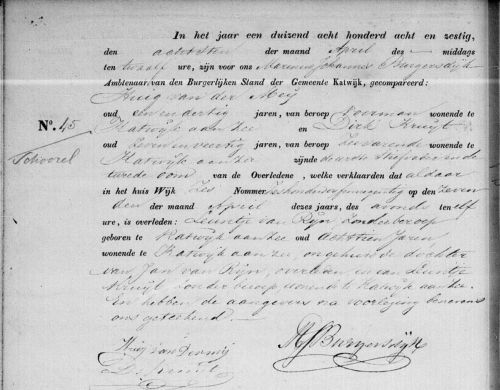 In het jaar een duizend acht honderd acht en zestig,
den achtsten der maand April des middags
ten twaalf ure, zijn voor ons Johannes Burgersdijk
Ambtenaar van den Burgerlijken Stand der Gemeente Katwijk, gecompareerd:
Huig van der Meij
oud een en dertig jaren, van beroep Voerman wonende te
N°. 45
Katwijk aan Zee en Dirk Kruijt
oud zeven en veertig jaren, van beroep Zeevarende wonende te
Katwijk aan Zee zijnde de eerste en de
tweede oom van de Overledene, welke verklaarden dat aldaar
in het huis Wijk Zes Nommer op den zeven
den der maand April dezes jaars, des avonds ten elf
ure, is overleden: van Rijn zonder beroep
geboren te Katwijk aan Zee oud achttien Jaren
wonende te Katwijk aan Zee, ongehuwde dochter
van Jan van Rijn, overleden, en van
Kruijt zonder beroep wonende te Katwijk aan Zee.
En hebben de aangevers na voorlezing benevens
ons geteekend.
Huig van der Meij
Burgersdijk
D. Kruijt